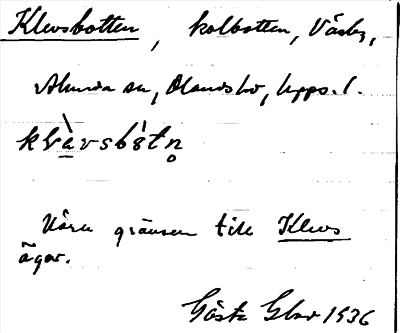 Klevsbotten, kolbotten, Väsby,
Alunda sn, Olands hd, Upps. l.
klàvsbòtn̥
Nära gränsen till Klevs
ägor.
Gösta 1936